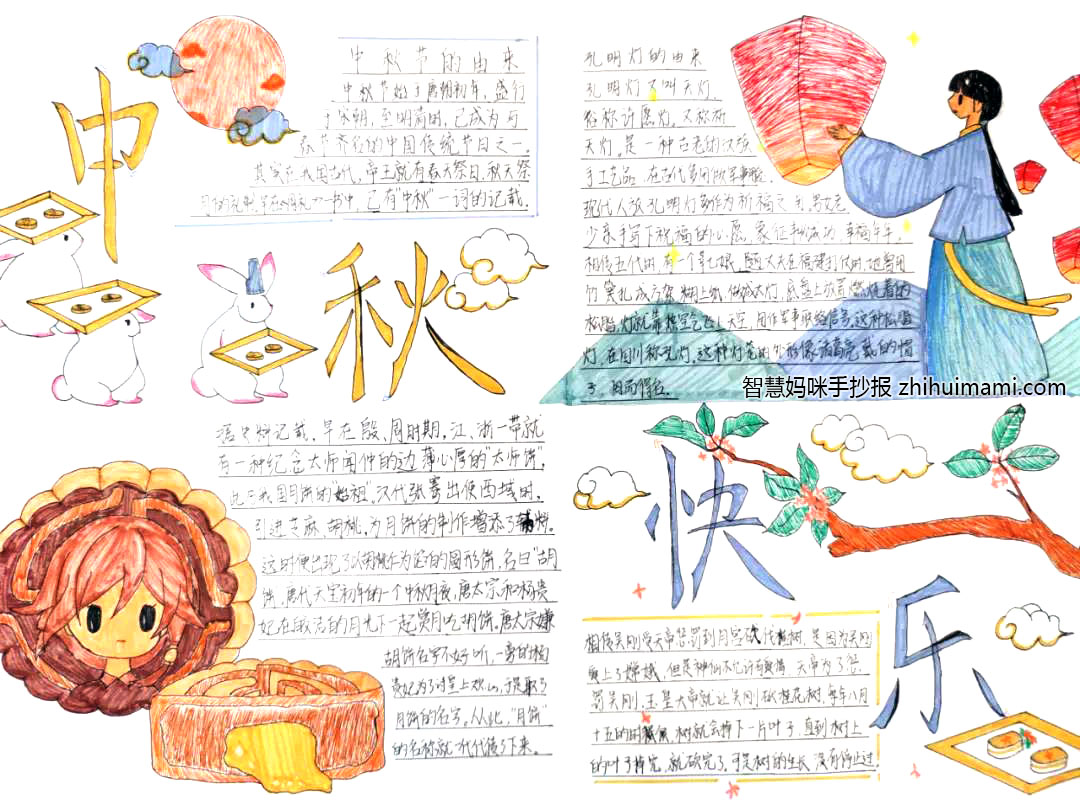 中
秋
中秋节的由来
中秋节始于唐朝初年，盛行
于宋朝，至明清时，已成为与
春节齐名的中国传统节日之一。
其实在我国古代，帝王就有春天祭日，秋天祭
月的礼制，早在《周礼》一书中，已有"中秋"一词的记载。
孔明灯的由来
孔明灯又叫天灯，
俗称许愿灯，又称祈
天灯。是一种古老的汉族
手工艺品，在古代多用做军事
现代人放孔明灯多作为祈福之用。男女老
少亲手写下祝福的心愿，象征丰收成功，幸福年年。
相传五代时，有一个
竹篾扎成方架，糊上纸，做成大灯，底盘上放置燃烧着的
松脂，灯就靠热空气飞上天空，用作军事联络信号。这种松脂
灯，在四川称孔灯，这种灯笼的外形像诸葛亮戴的帽
子，因而得名。
智慧妈咪手抄报 zhihuimami.com
据史料记载，早在殷、周时期，江、浙一带就
有一种纪念太师闻仲的边薄心厚的"太师饼"，
此乃我国月饼的"始祖"。汉代张骞出使西域时，
引进芝麻、胡桃，为月饼的制作增添了辅料。
这时便出现了以胡桃仁为馅的圆形饼，名曰"胡
饼。唐代天宝初年的一个中秋月夜，唐太宗和杨贵
妃在皎洁的月光下一起赏月吃胡饼。唐太宗嫌
胡饼名字不好听，一旁的杨
贵妃为了讨皇上欢心，于是取了
月饼的名字。从此，"月饼"
的名称就代代传了下来。
快
乐
相传吴刚受天帝惩罚到月宫砍伐桂树，是因为吴刚
爱上了嫦娥，但是神仙不允许有爱情，天帝为了惩
罚吴刚，玉皇大帝就让吴刚砍桂花树，每年八月
十五的时候 树就会掉下一片叶子，直到树上
的叶子掉完，就砍完了，可是树的生长，没有停止过。